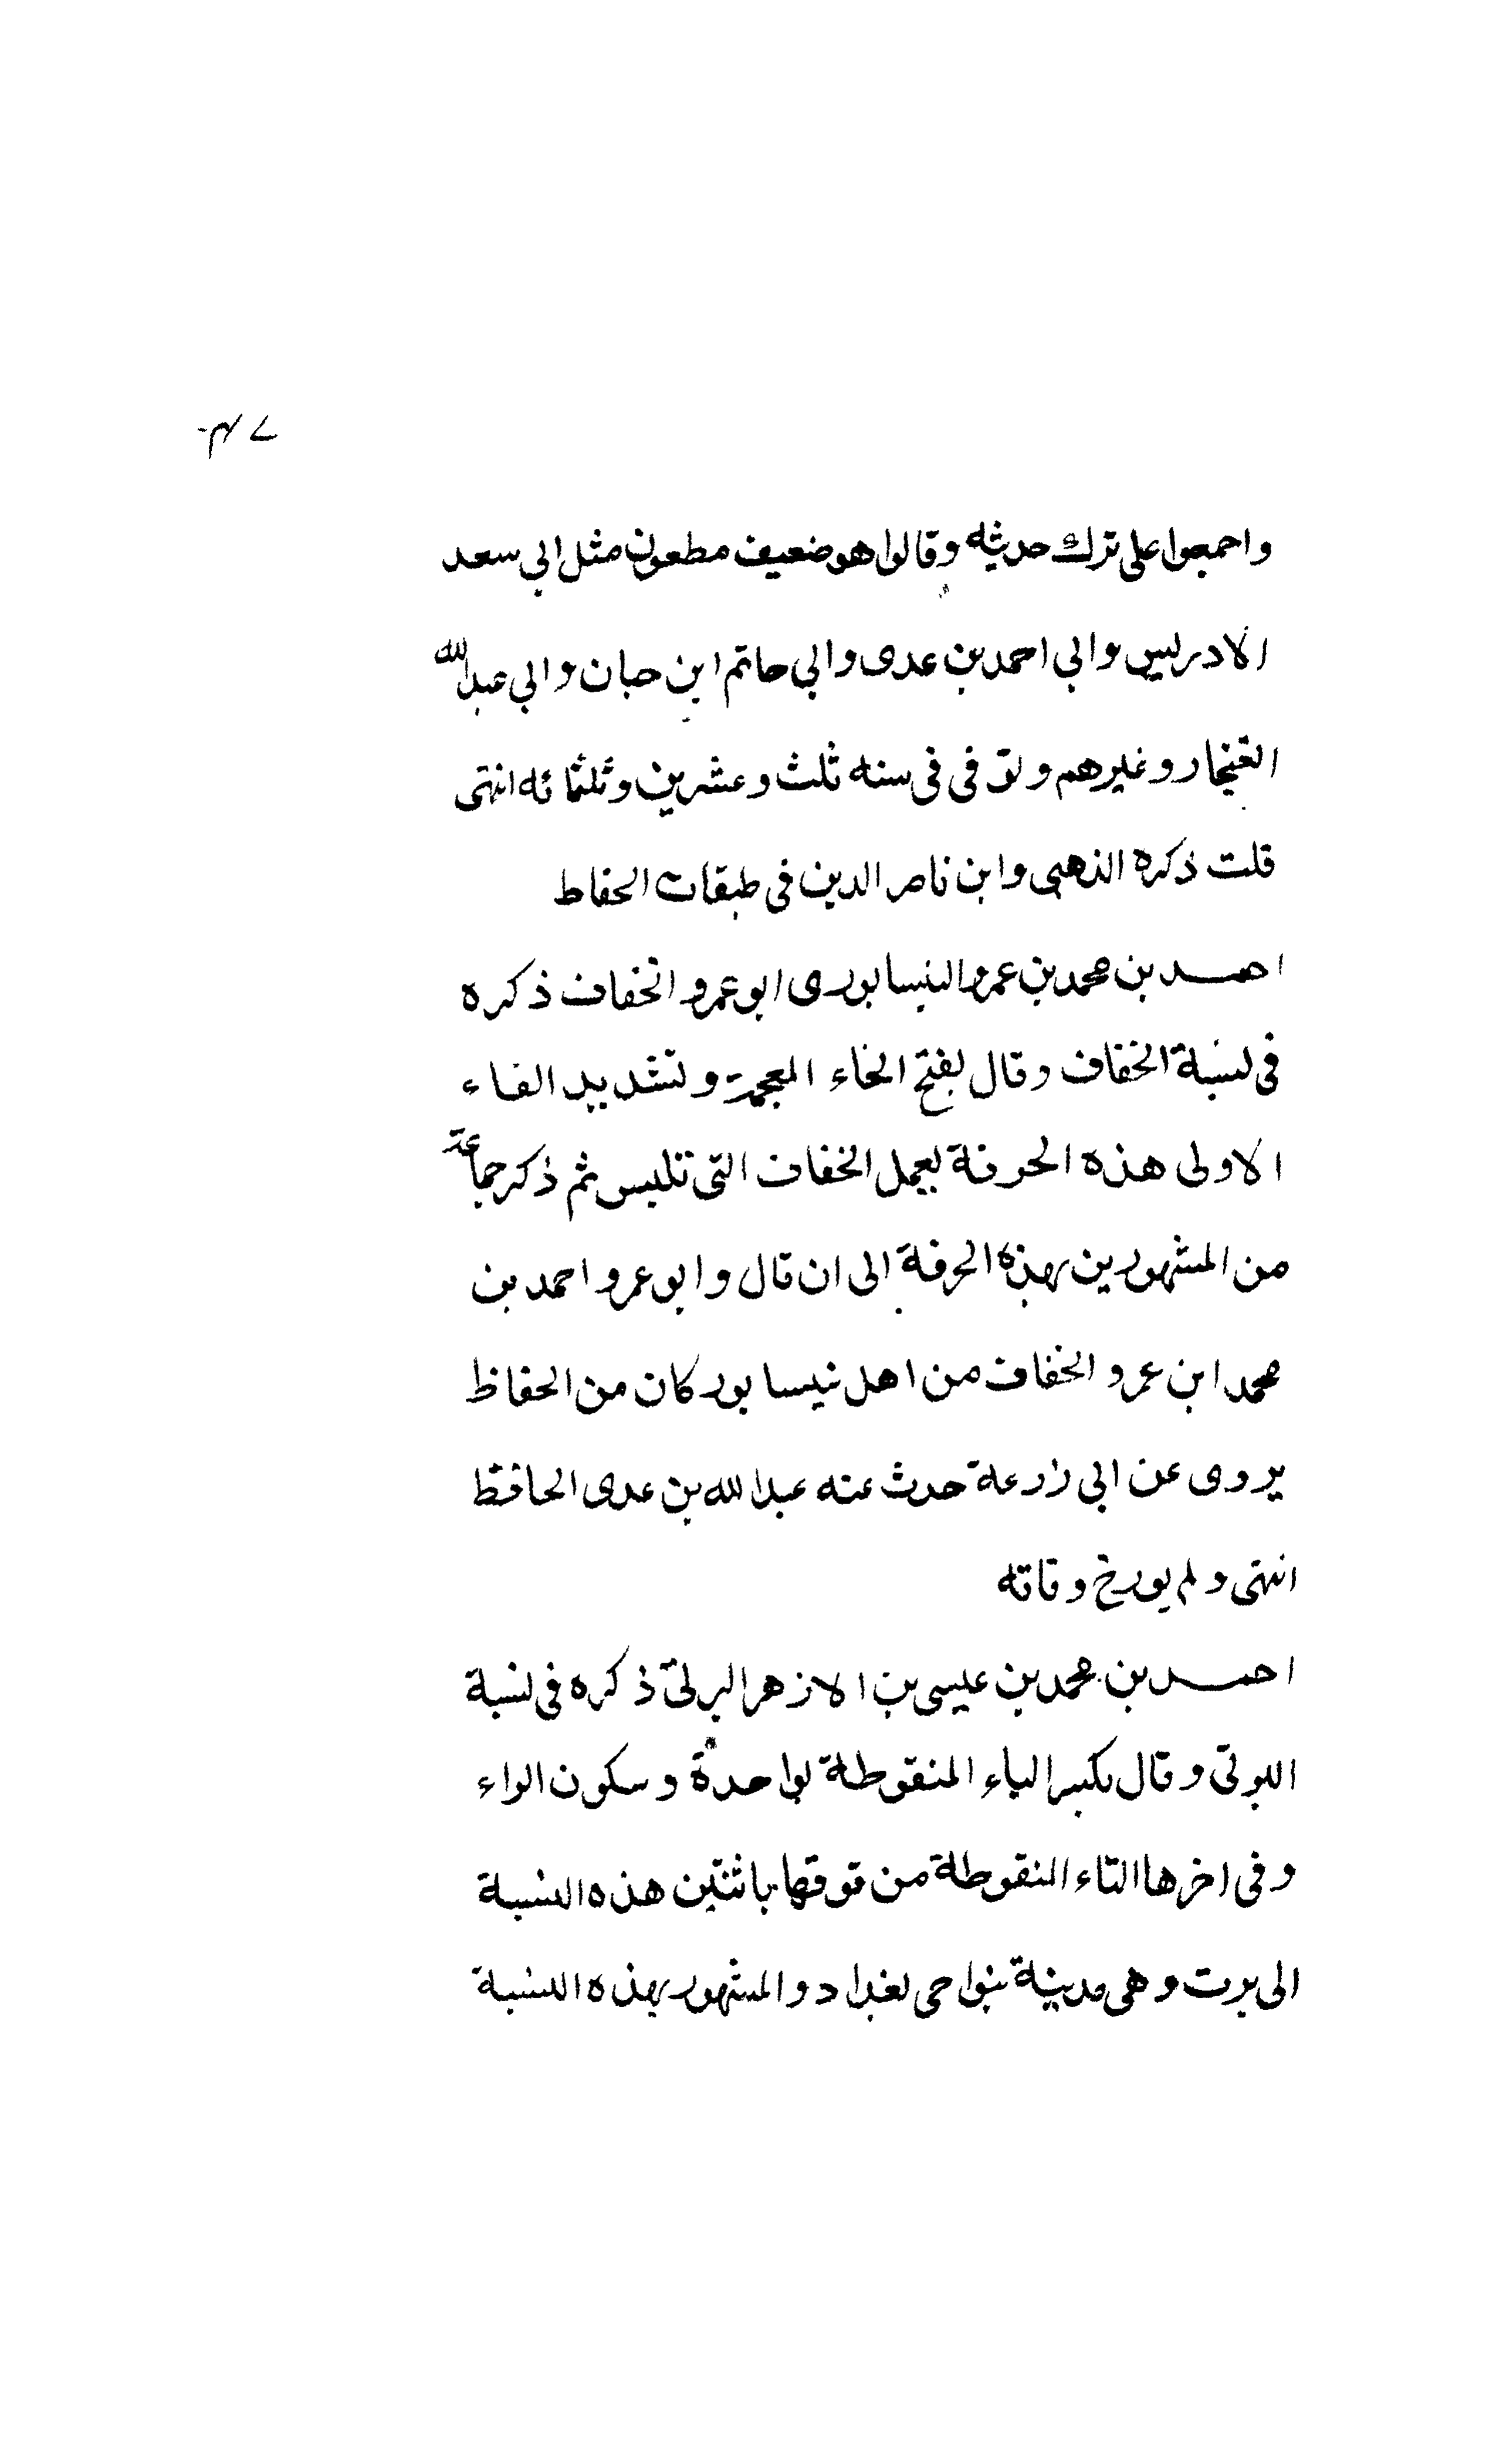 واجمعوا على ترك حديثه وقالوا هو ضعيف مطعون مثل ابي سعد
الادريسي وابي احمد بن عدى وابي حاتم ابن حبان وابي عبد الله
الغنجار وغيرهم وتوفى فى سنه ثلث وعشرين وثلثمائه انتهى
قلت ذكره الذهبى وابن ناصر الدين فى طبقات الحفاظ
احمد بن محمد بن عمرو النيسابورى ابو عمرو الخفاف ذكره
فى نسبة الخفاف وقال بفتح الخاء المعجمة وتشديد الفاء
الاولى هذه الحرفة بعمل الخفاف التى تلبس ثم ذكر جماعة
من المشهورين بهذه الحرفة الى ان قال وابو عمرو احمد بن
محمد ابن عمرو الخفاف من اهل نيسابور كان من الحفاظ
يروى عن ابي زرعة حدث عنه عبد الله بن عدى الحافظ
انتهى ولم يورخ وفاته
احمد بن محمد بن عيسى بن الازهر البرتى ذكره فى نسبة
البرتى وقال بكسر الباء المنقوطة بواحدة وسكون الراء
وفى اخرها التاء المنقوطة من فوقها باثنتين هذه النسبة
الى برت وهى مدينة بنواحى بغداد والمشهور بهذه النسبة